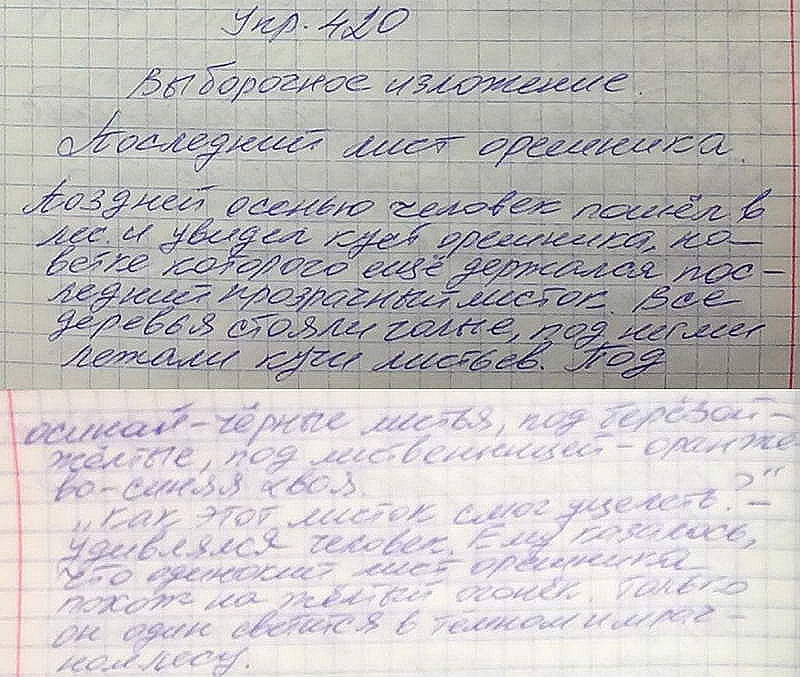 Упр. 420
Выборочное изложение.
Последний лист орешника.
Поздней осенью человек пошёл в
лес и увидел куст орешника, на
ветке которого ещё держался пос-
ледний прозрачный листок. Все
деревья стояли голые, под ними
лежали кучи листьев. Под
осиной - чёрные листья, под берёзой -
жёлтые, под лиственницей - оранже
во-синяя хвоя.
„Как этот листок смог уцелеть?" -
удивлялся человек. Ему казалось,
что одинокий лист орешника
похож на жёлтый огонёк. Только
он один светится в тёмном и мрач-
ном лесу.